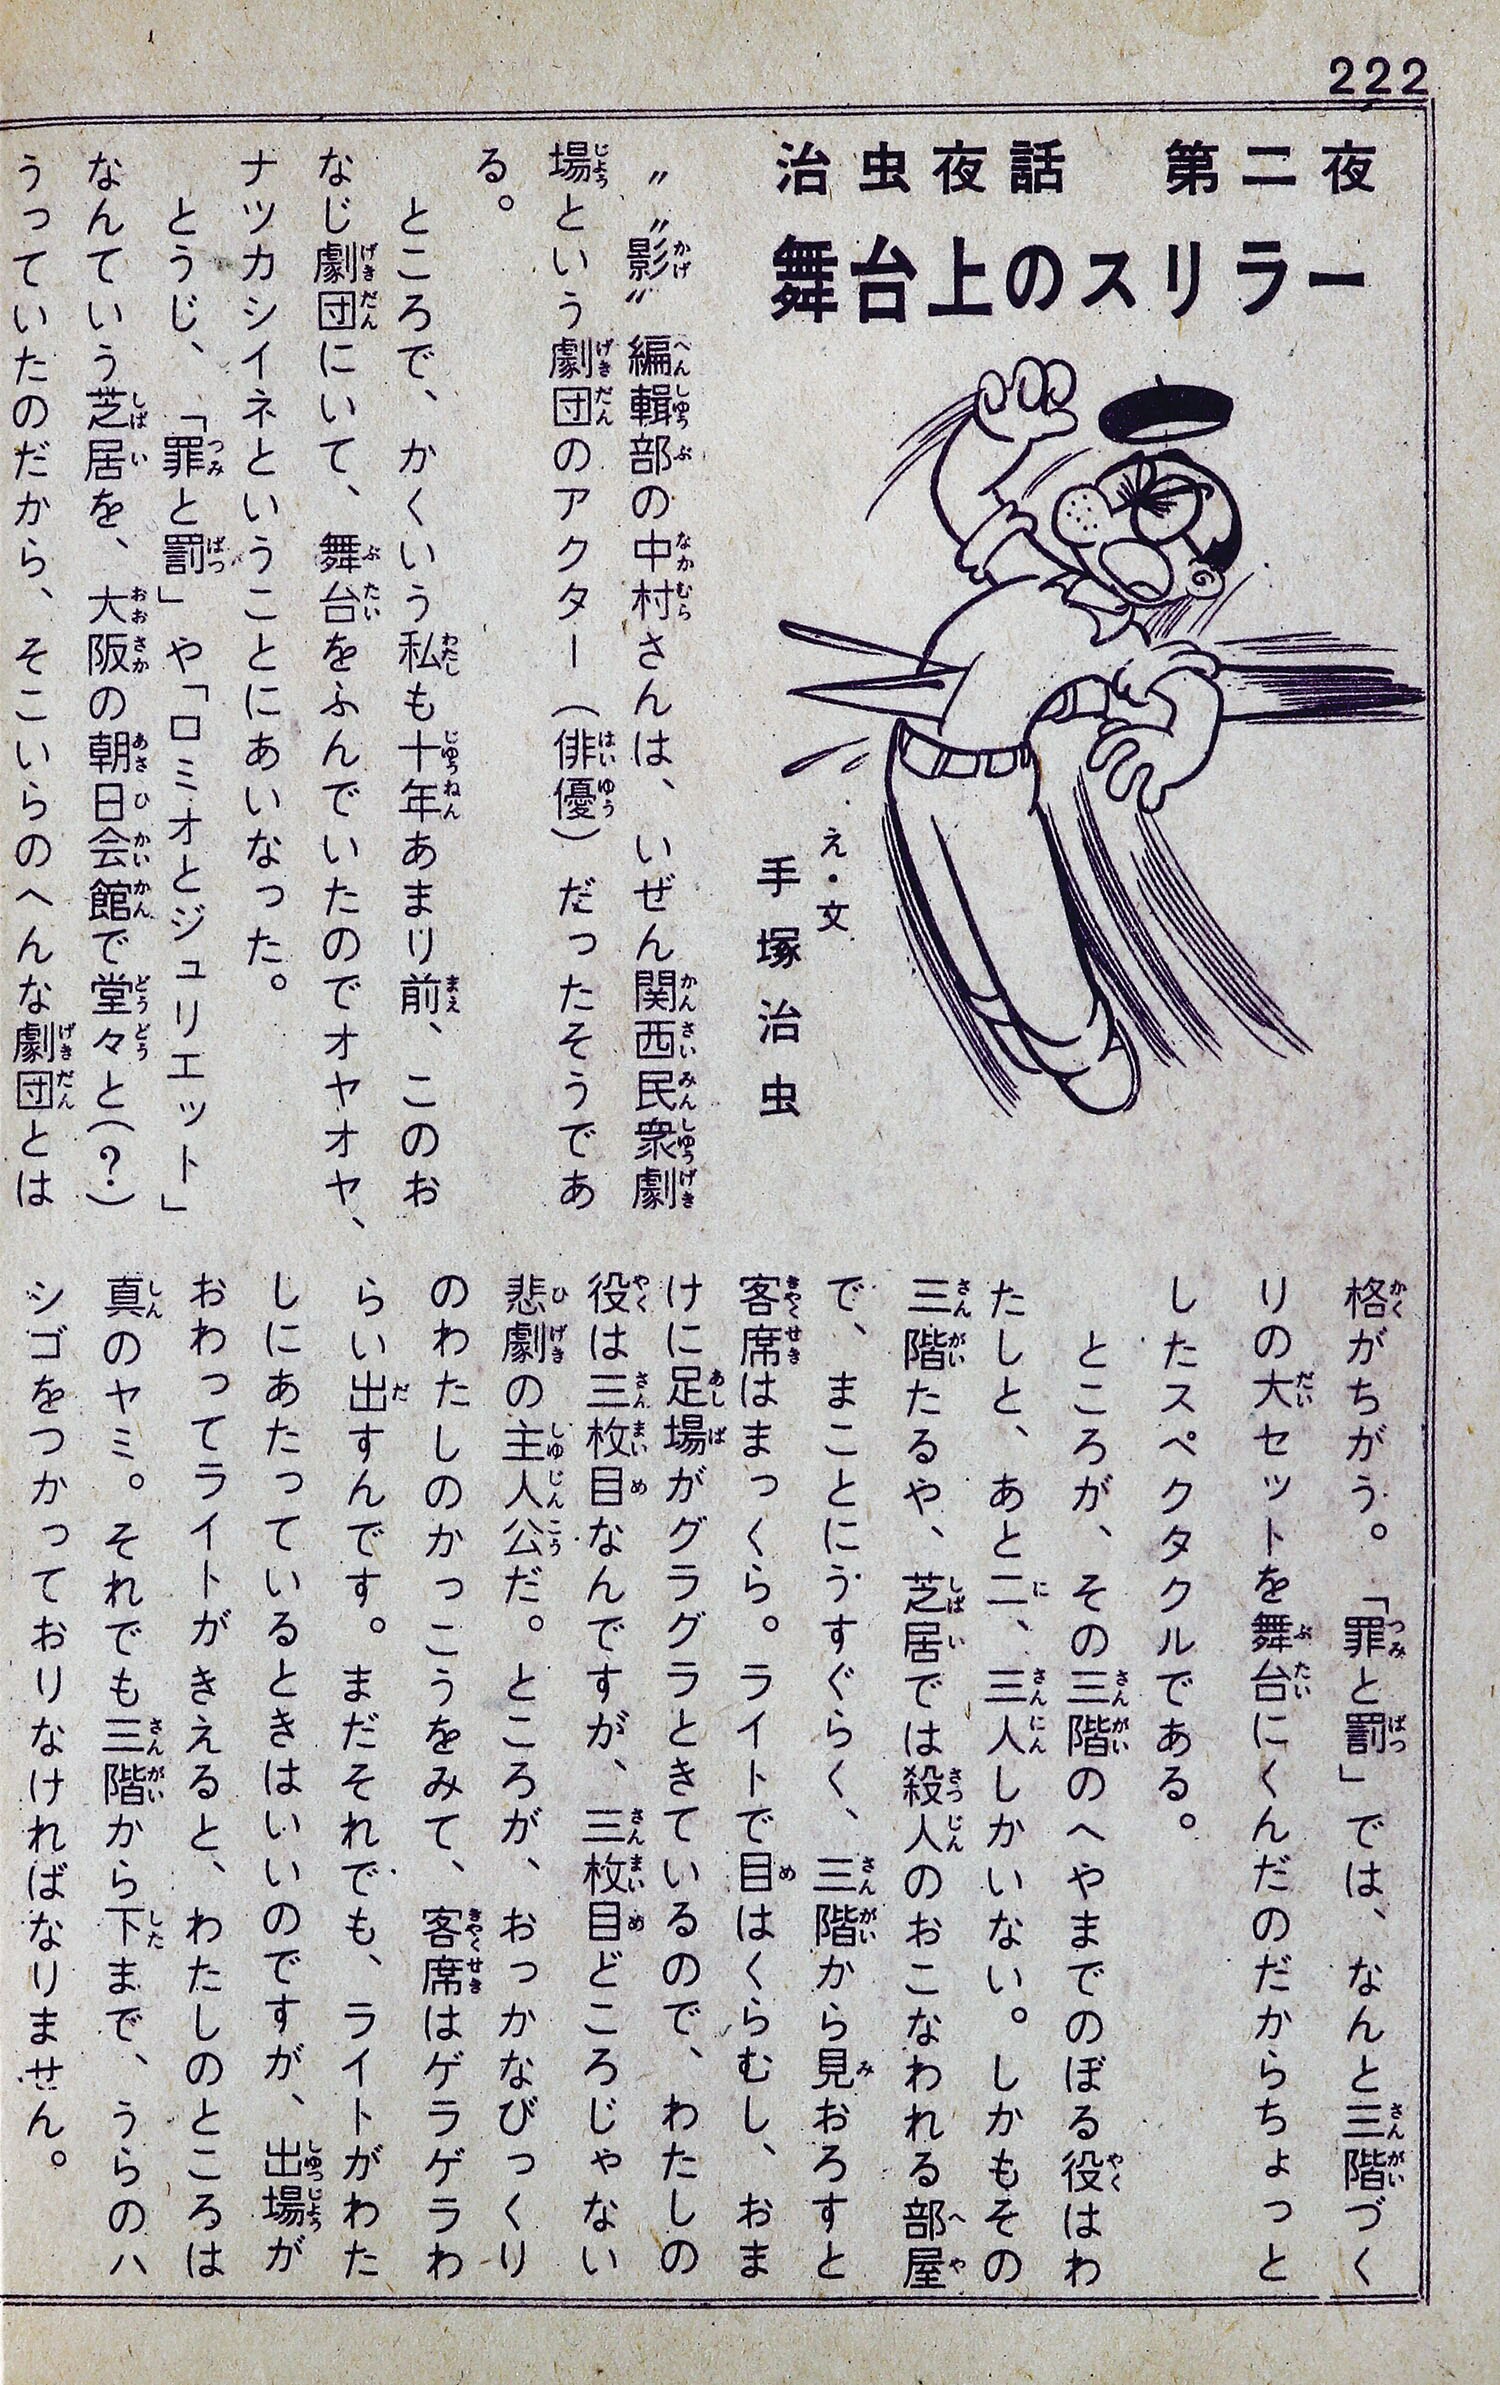 222
治虫夜話　第二夜
舞台上のスリラー
え・文
手塚治虫
〃〃影〃編輯部の中村さんは、いぜん関西民衆劇
場という劇団のアクター（俳優）だったそうであ
る。
ところで、かくいう私も十年あまり前、このお
なじ劇団にいて、舞台をふんでいたのでオヤオヤ、
ナツカシイネということにあいなった。
とうじ、「罪と罰」や「ロミオとジュリエット」
なんていう芝居を、大阪の朝日会館で堂々と（？）
うっていたのだから、そこいらのへんな劇団とは
格がちがう。「罪と罰」では、なんと三階づく
りの大セットを舞台にくんだのだからちょっと
したスペクタクルである。
ところが、その三階のへやまでのぼる役はわ
たしと、あと二、三人しかいない。しかもその
三階たるや、芝居では殺人のおこなわれる部屋
で、まことにうすぐらく、三階から見おろすと
客席はまっくら。ライトで目はくらむし、おま
けに足場がグラグラときているので、わたしの
役は三枚目なんですが、三枚目どころじゃない
悲劇の主人公だ。ところが、おっかなびっくり
のわたしのかっこうをみて、客席はゲラゲラわ
らい出すんです。まだそれでも、ライトがわた
しにあたっているときはいいのですが、出場が
おわってライトがきえると、わたしのところは
真のヤミ。それでも三階から下まで、うらのハ
シゴをつかっておりなければなりません。